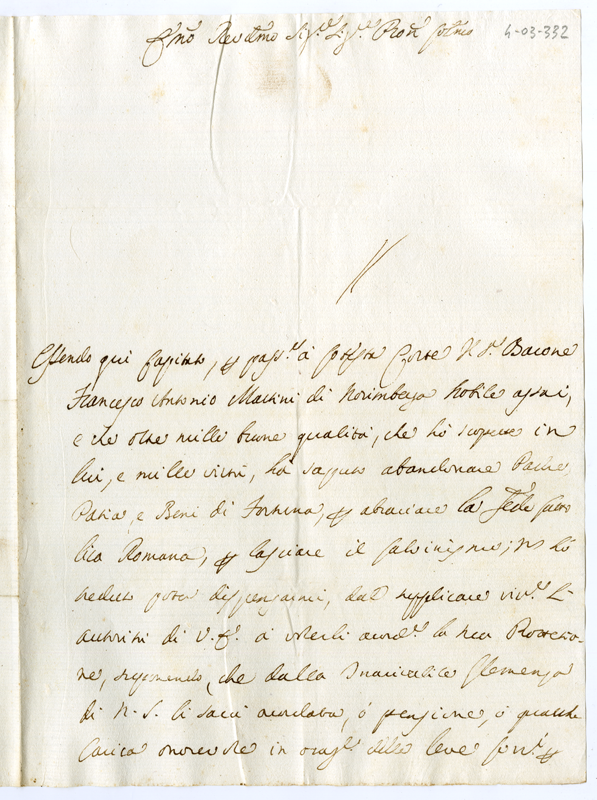 Em̃o Reverd.mo Sig.r Sig.r Pron̄ Col.mo 4-03-332
Essendo qui capitato, per pass.e à cotesta Corte il S.r Barone
Francesco Antonio Martini di Norimberga Nobile assai,
e che oltre mille buone qualità, che hò scoperte in
lui, e mille virtù, hà saputo abandonare Padre,
Patria, e Beni di Fortuna, per abraciare la Fede Catto
lica Romana, per lasciare il Calvinismo; Nõ hò
veduto poter dispensarmi, dal supplicare viv.te L'
autorità di V. E. à volerli accord.e la sua Protetio-
ne, supponendo, che dalla Clemenza
di N. S. li sarà accordata, ò pensione, ò qualche
Carica onorevole in delle leve per